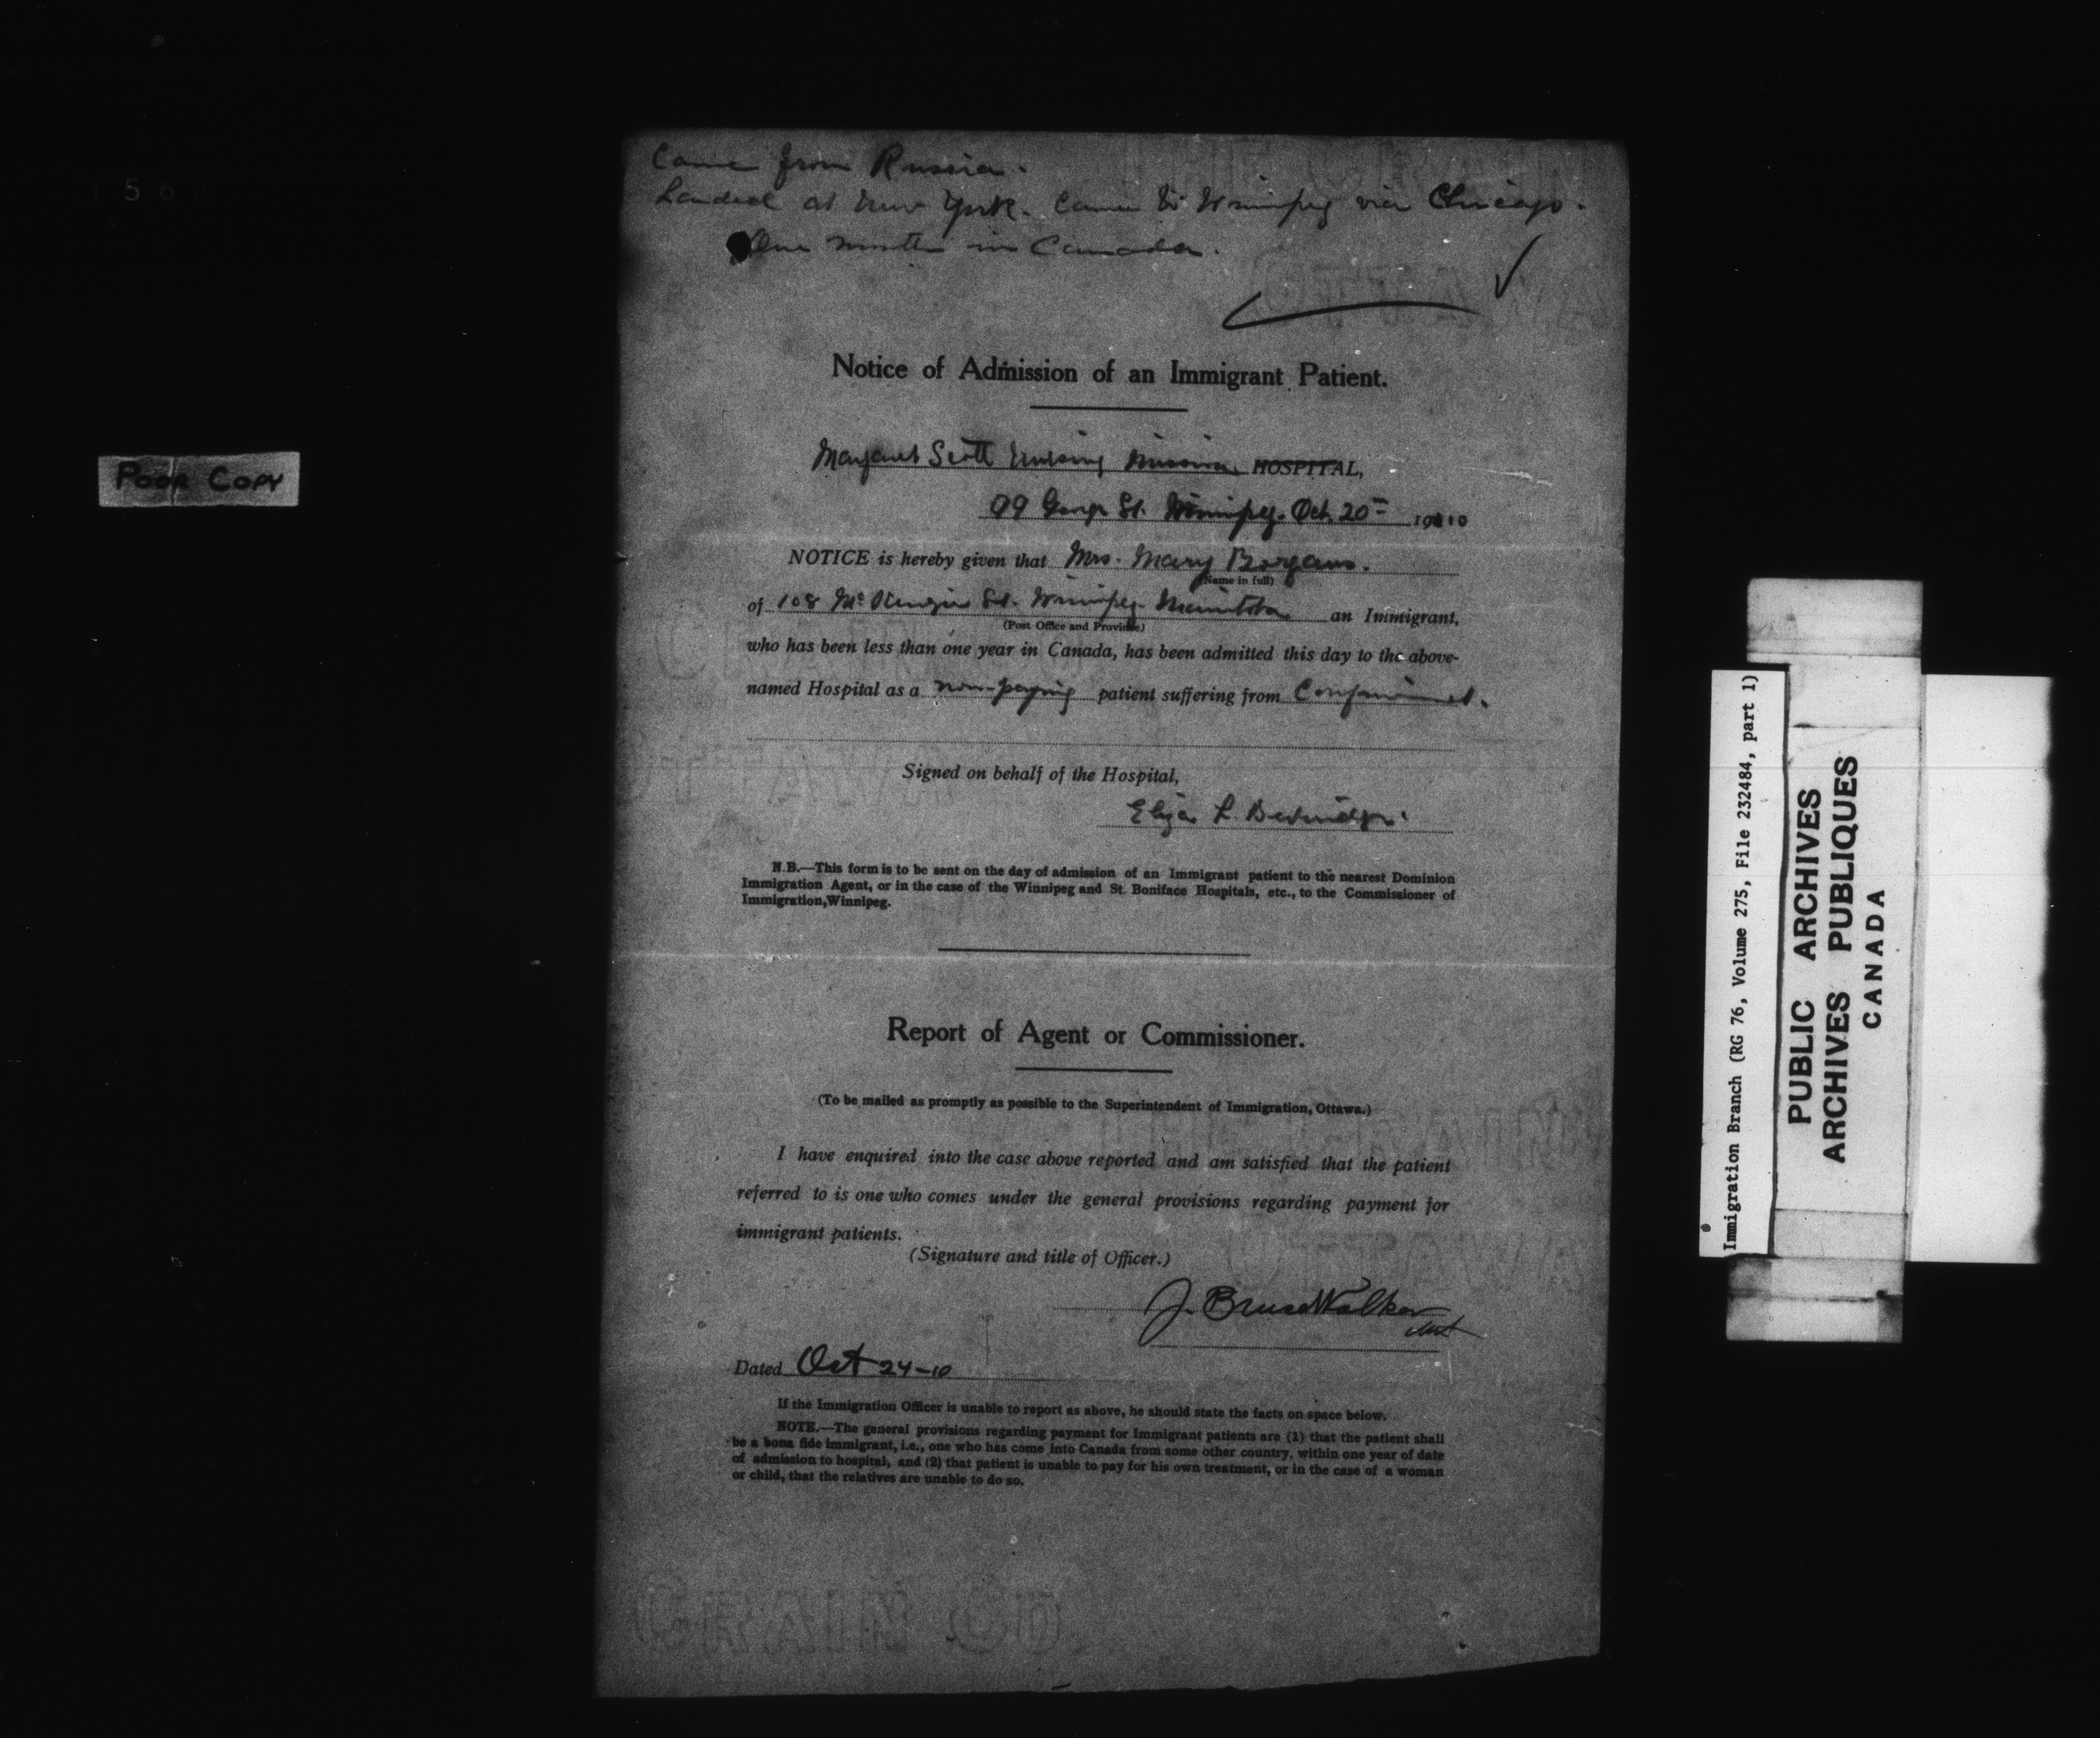 Came from Russia.
Landed at New York. Came to Winnipeg via Chicago.
One month in Canada.
Notice of Admission of an Immigrant Patient.
Margaret Scott Nursing Mission HOSPITAL,
99 George St. Winnipeg. Oct. 20 1910
NOTICE is hereby given that Mrs. Mary
(Name in full)
of 108 McKenzie St. Winnipeg. Manitoba an Immigrant,
(Post Office and Province)
who has been less than one year in Canada, has been admitted this day to the above-
named Hospital as a non-paying patient suffering from Confinement.
Signed on behalf of the Hospital,
Eliza L.
N.B.—This form is to be sent on the day of admission of an Immigrant patient to the nearest Dominion
Immigration Agent, or in the case of the Winnipeg and St. Boniface Hospitals, etc., to the Commissioner of
Immigration, Winnipeg.
Report of Agent or Commissioner.
(To be mailed as promptly as possible to the Superintendent of Immigration, Ottawa.)
I have enquired into the case above reported and am satisfied that the patient
referred to is one who comes under the general provisions regarding payment for
immigrant patients.
(Signature and title of Officer.)
J. Bruce Walker
Dated Oct 24-10
If the Immigration Officer is unable to report as above, he should state the facts on space below.
NOTE.—The general provisions regarding payment for Immigrant patients are (1) that the patient shall
be a bona fide immigrant, i.e., one who has come into Canada from some other country, within one year of date
of admission to hospital, and (2) that patient is unable to pay for his own treatment, or in the case of a woman
or child, that the relatives are unable to do so.
POOR COPY
Immigration Branch (RG 76, Volume 275, File 232484, part 1)
PUBLIC ARCHIVES
ARCHIVES PUBLIQUES
CANADA